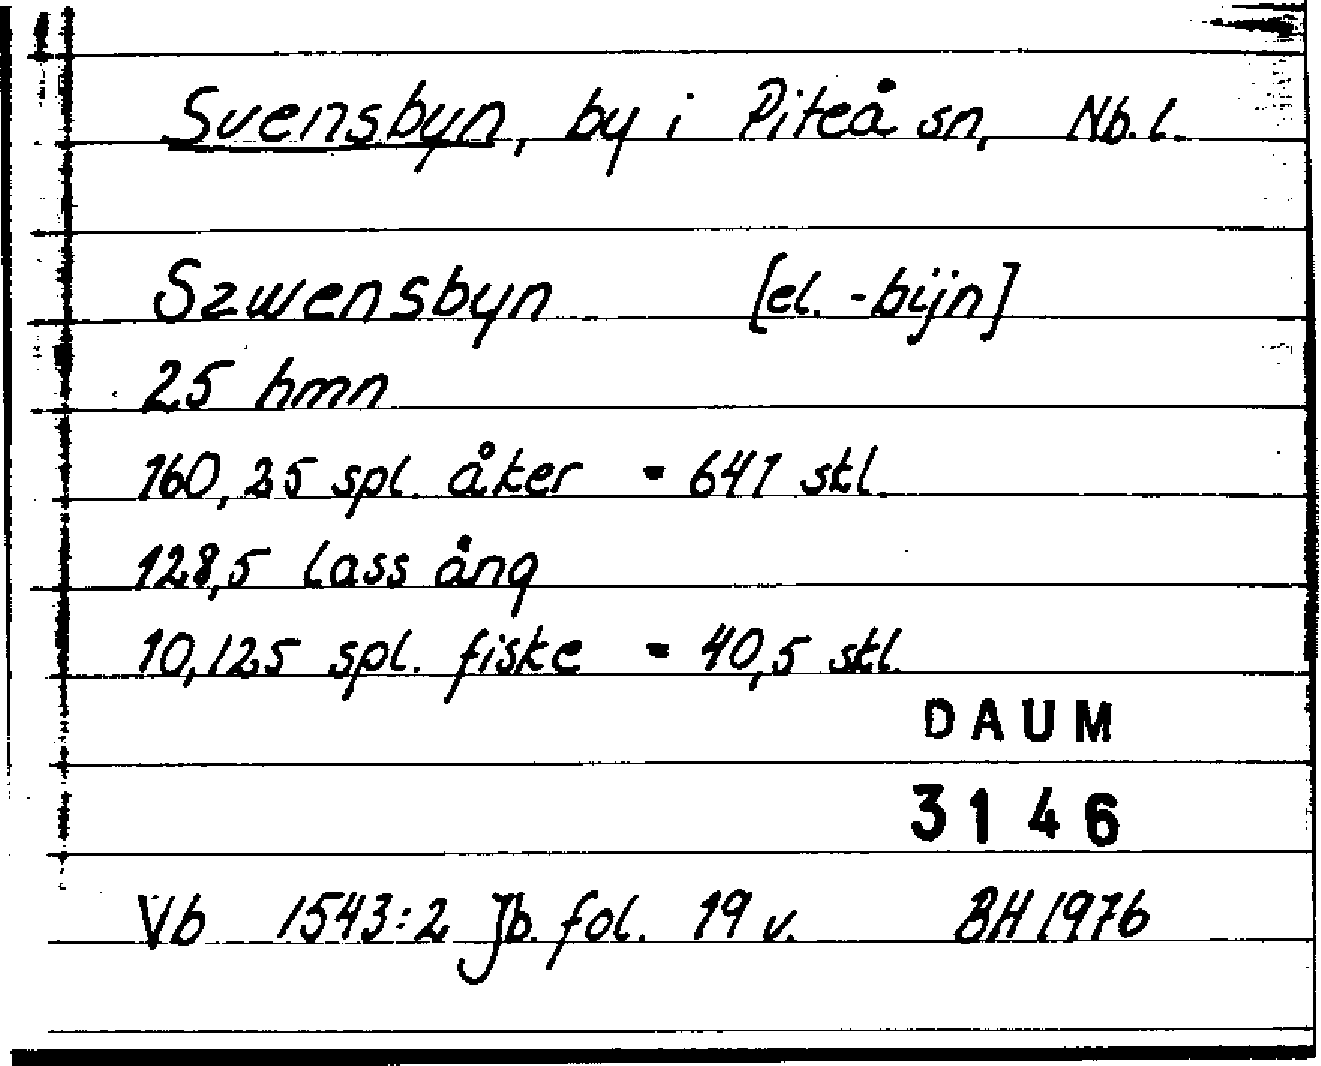 Svensbyn, by i Piteå sn, Nb. l.
Szwensbyn [el. -bijn]
25 hmn
160,25 spl. åker = 641 stl.
128,5 lass äng
10,125 spl. fiske = 40,5 stl.
DAUM
3146
Vb 1543:2 Jb. fol. 19 v. BH 1976